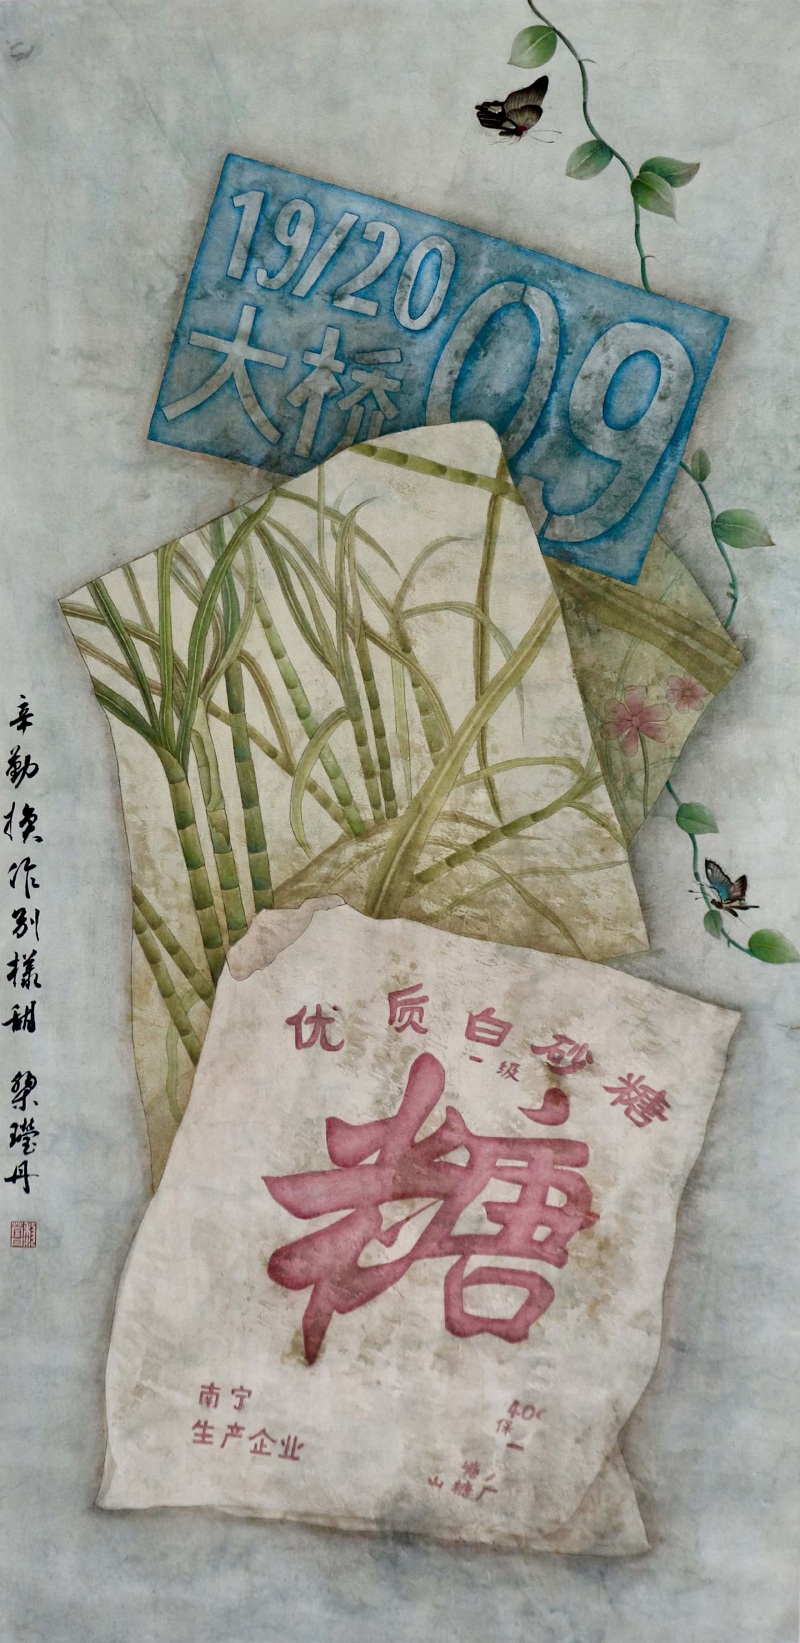 19/20
大桥
09
优质白砂糖
一级
糖
南宁
生产企业
400
保
一
糖
山糖厂
辛勤换作别样甜 梁瀅丹